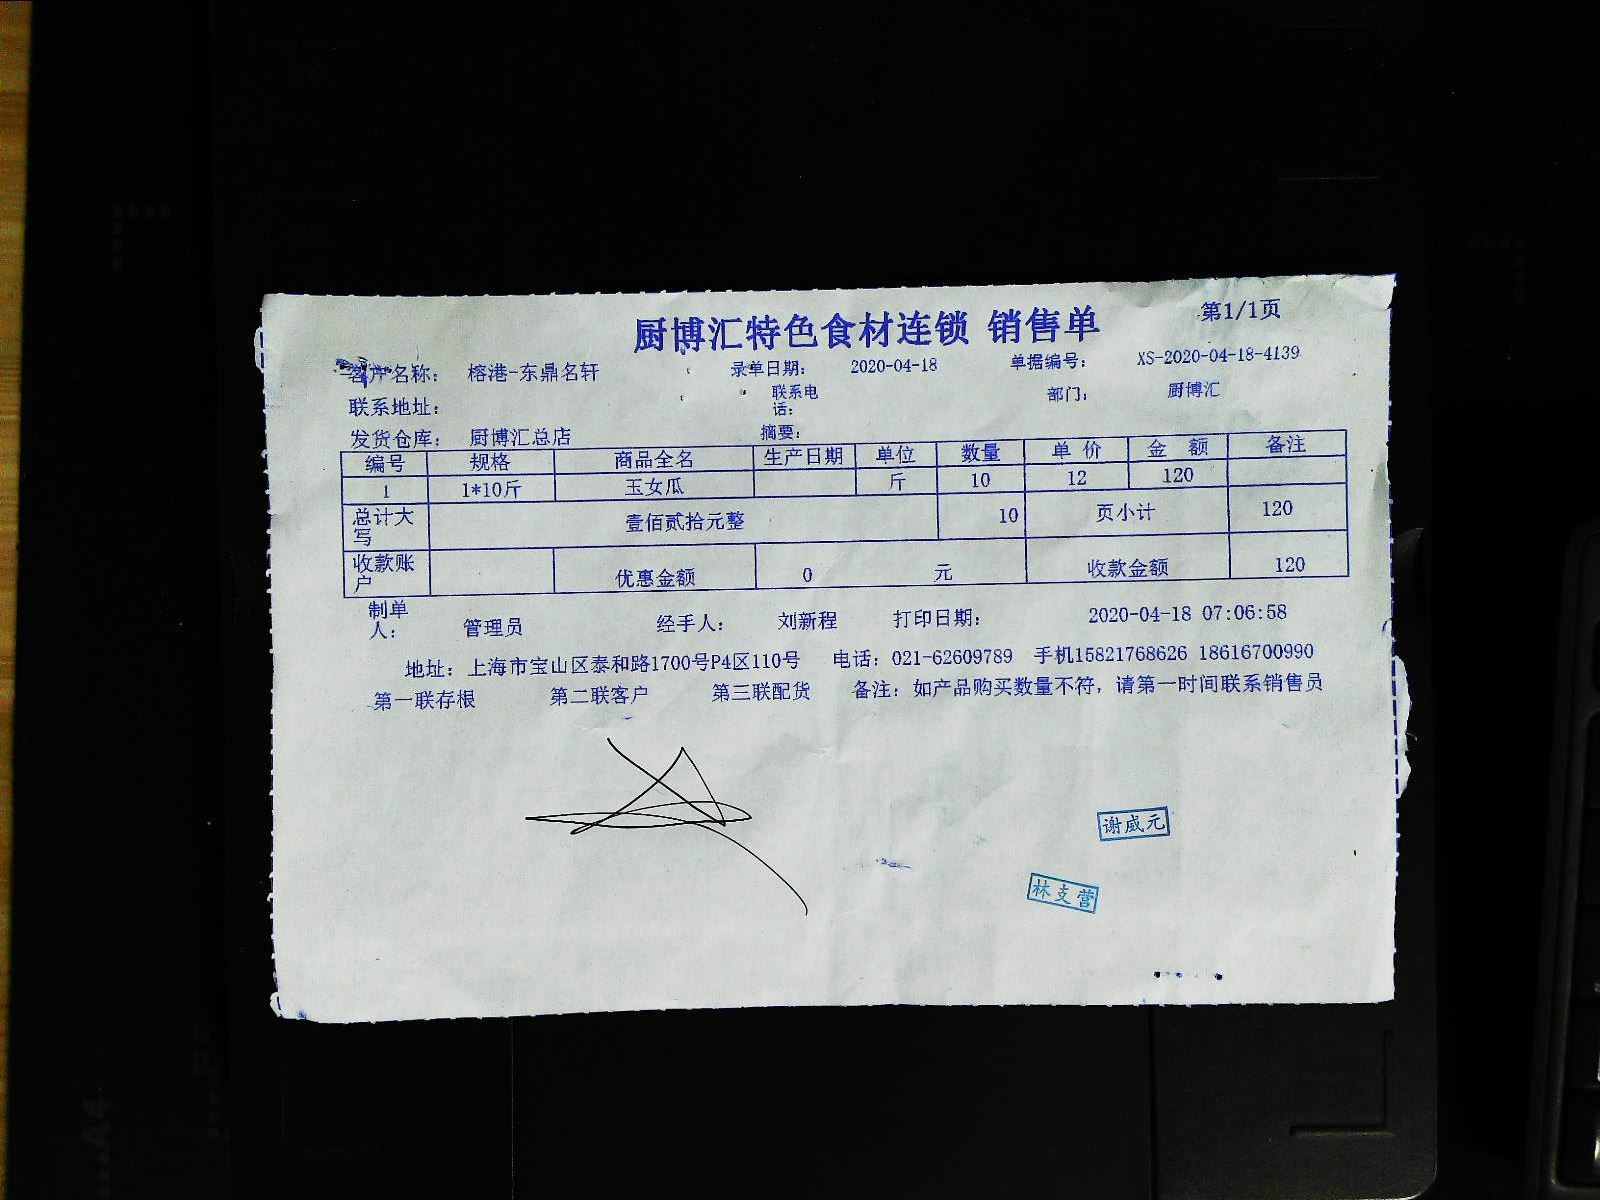 厨博汇特色食材连锁 销售单 第1/1页
客户名称： 榕港-东鼎名轩 录单日期： 2020-04-18 单据编号： XS-2020-04-18-4139
联系地址： 联系电话： 部门： 厨博汇
发货仓库： 厨博汇总店 摘要：
编号 规格 商品全名 生产日期 单位 数量 单价 金额 备注
1 1*10斤 玉女瓜 斤 10 12 120
总计大写 壹佰贰拾元整 10 页小计 120
收款账户 优惠金额 0 元 收款金额 120
制单人： 管理员 经手人： 刘新程 打印日期： 2020-04-18 07:06:58
地址：上海市宝山区泰和路1700号P4区110号 电话：021-62609789 手机15821768626 18616700990
第一联存根 第二联客户 第三联配货 备注：如产品购买数量不符，请第一时间联系销售员
谢威元
林支营